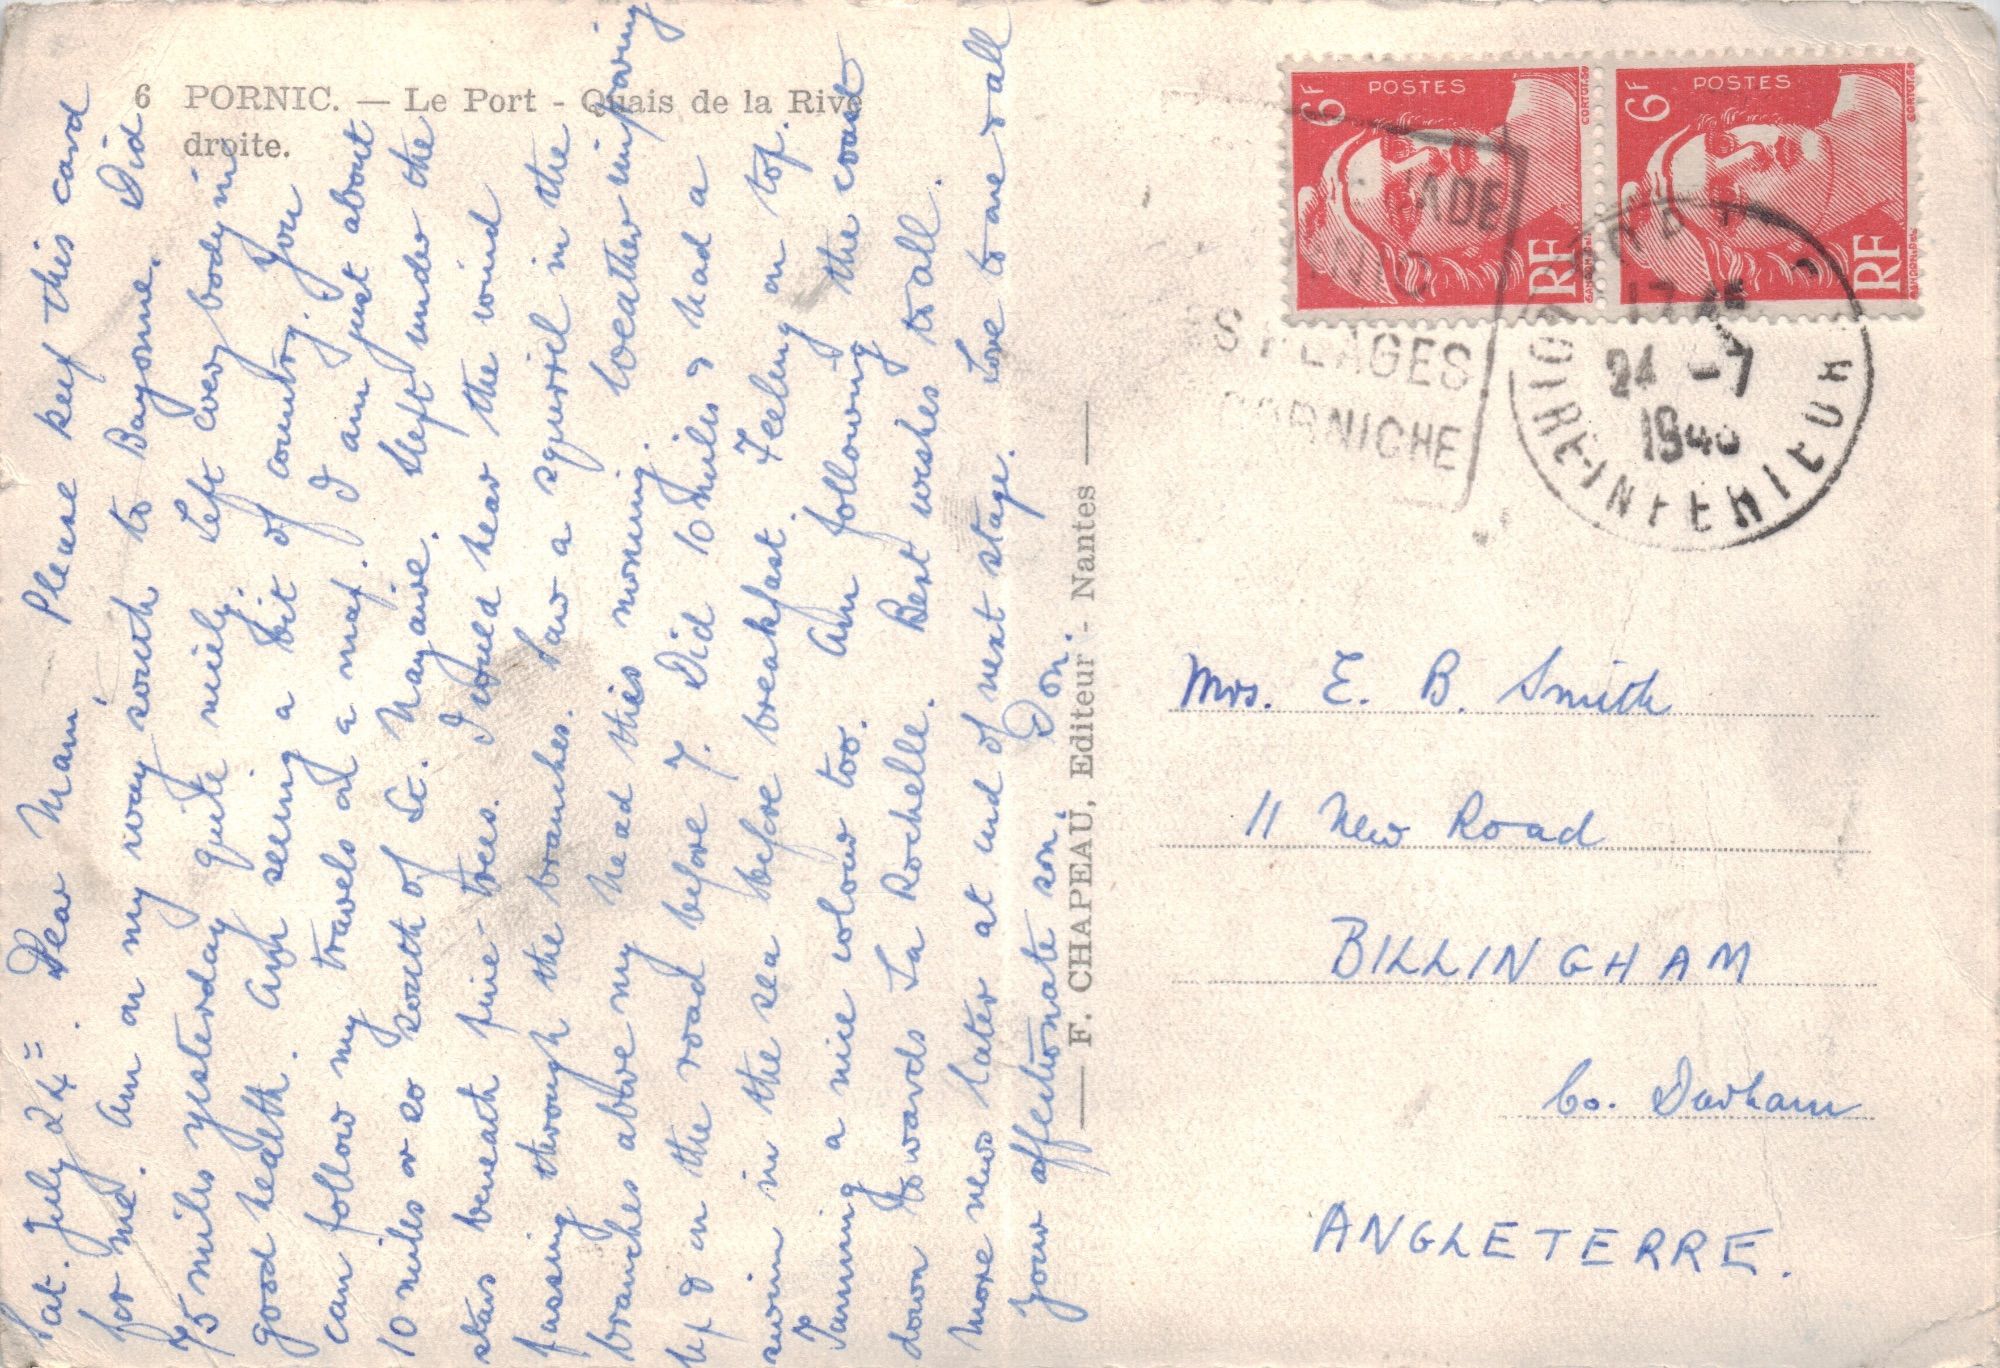 6 PORNIC. — Le Port - Quais de la Rive
droite.
Sat. July 24=. Dear Mam, Please keep this card
for me. Am on my way south to Bayonne. Did
75 miles yesterday quite nicely. Left every body in
good health. Am seeing a bit of country. You
can follow my travels on a map. I am just about
10 miles or so south of St. Nazaire. Slept under the
stars beneath pine-trees. I could hear the wind
passing through the branches. Saw a squirrel in the
branches above my head this morning. Weather improving
up & on the road before 7. Did 10 miles & had a
swim in the sea before breakfast. Feeling on top.
Tanning a nice colour too. Am following the coast
down towards La Rochelle. Best wishes to all.
More news later at end of next stage. Love to one & all
your affectionate son. Don.
— F. CHAPEAU, Editeur - Nantes —
POSTES
6F
RF
POSTES
6F
RF
PLAGES
CORNICHE
24 -7
194
Mrs. E. B. Smith
11 New Road
BILLINGHAM
Co. Durham
ANGLETERRE.